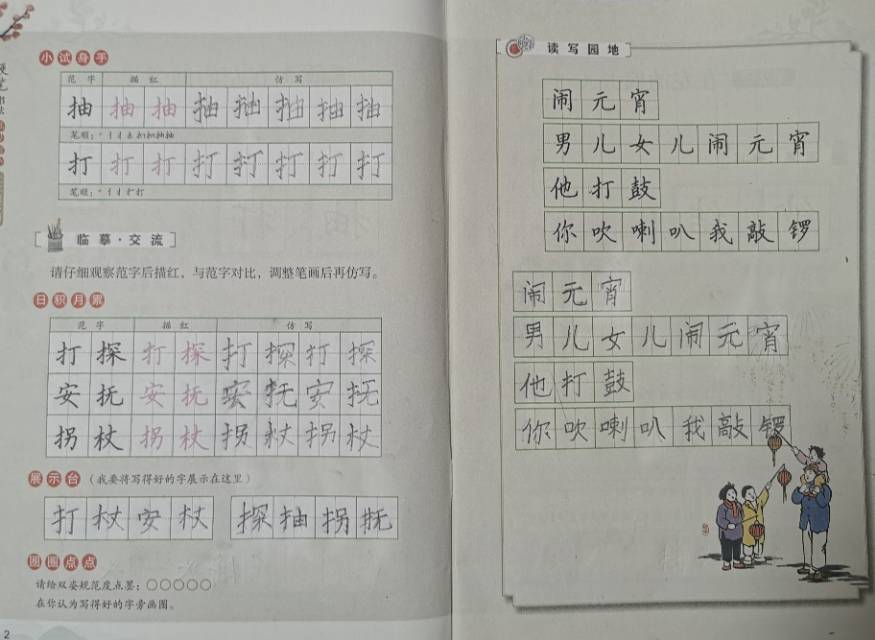 小试身手
范字 描红 仿写
抽 抽 抽 抽 抽 抽 抽 抽
打 打 打 打 打 打 打 打
临摹·交流
请仔细观察范字后描红,与范字对比,调整笔画后再仿写。
日积月累
范字 描红 仿写
打 探 打 探 打 探 打 探
安 抚 安 抚 安 抚 安 抚
拐 杖 拐 杖 拐 杖 拐 杖
展示台 (我要将写得好的字展示在这里)
打 杖 安 杖 探 抽 拐 抚
圈圈点点
请给双姿规范度点墨:○○○○○
在你认为写得好的字旁画圈。
2
读写园地
闹元宵
男儿女儿闹元宵
他打鼓
你吹喇叭我敲锣
闹元宵
男儿女儿闹元宵
他打鼓
你吹喇叭我敲锣